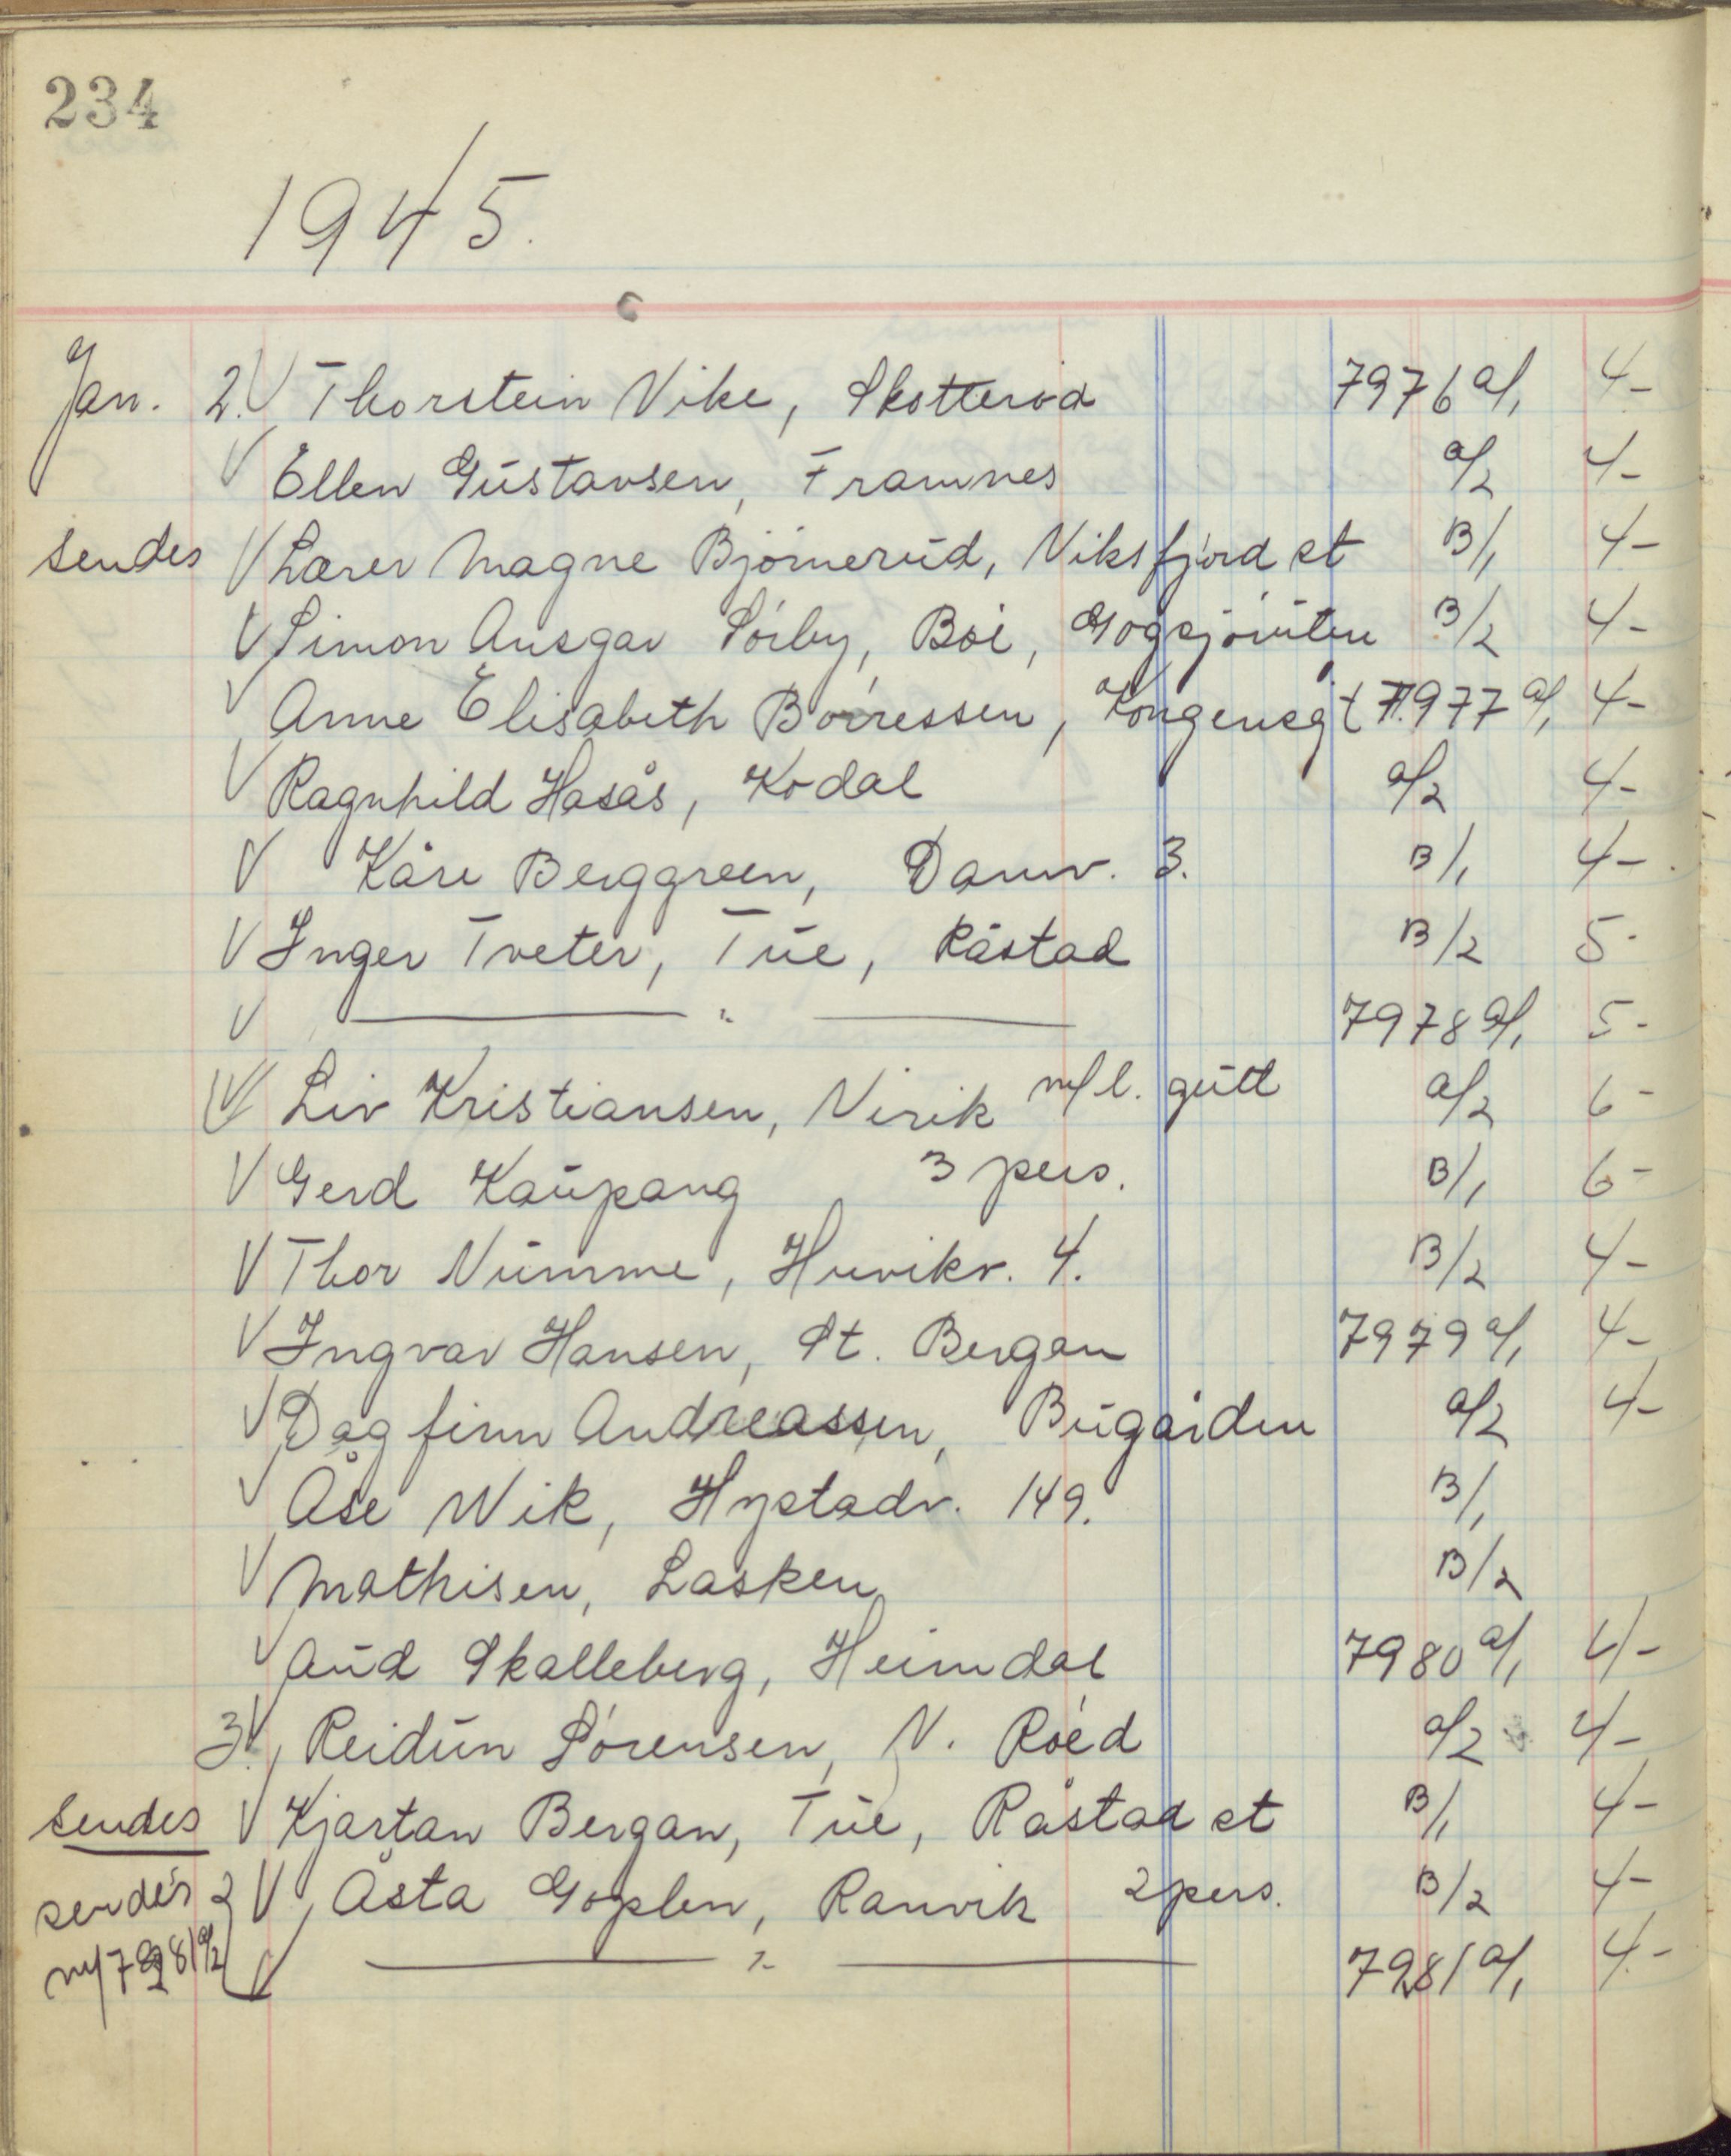 234
1945.
Jan. 2. V Thorstein Vike, Skotterød 7976 a/1 4-
V Ellen Gustavsen, Framnes a/2 4-
sendes V Lærer Magne Bjørnerud, Viksfjord st B/1 4-
V Simon Ansgar Sørby, Bøe, Gogsjøruten B/2 4-
V Anne Elisabeth Børressen, Kongensgt 77. 7977 a/1 4-
V Ragnhild Hasås, Kodal a/2 4-
V Kåre Berggreen, Damv. 3. B/1 4-
V Inger Tveter, Tue, Råstad B/2 5-
V —— " —— 7978 a/1 5-
V Liv Kristiansen, Virik m/l. gutt a/2 6-
V Gerd Kaupang 3 pers. B/1 6-
V Thor Numme, Huvikv. 4. B/2 4-
V Ingvar Hansen, St. Bergan 7979 a/1 4-
V Dagfinn Andreassen, Bugården a/2 4-
V Åse Wik, Hystadv. 149. B/1
V Mathisen, Lasken B/2
V Aud Skalleberg, Heimdal 7980 a/1 4-
3. V Reidun Sørensen, N. Røed a/2 4-
sendes V Kjartan Bergan, Tue, Råstad st B/1 4-
sendes 2 V Åsta Goplen, Ranvik 2 pers. B/2 4-
m/7981 a/2 V —— " —— 7981 a/1 4-